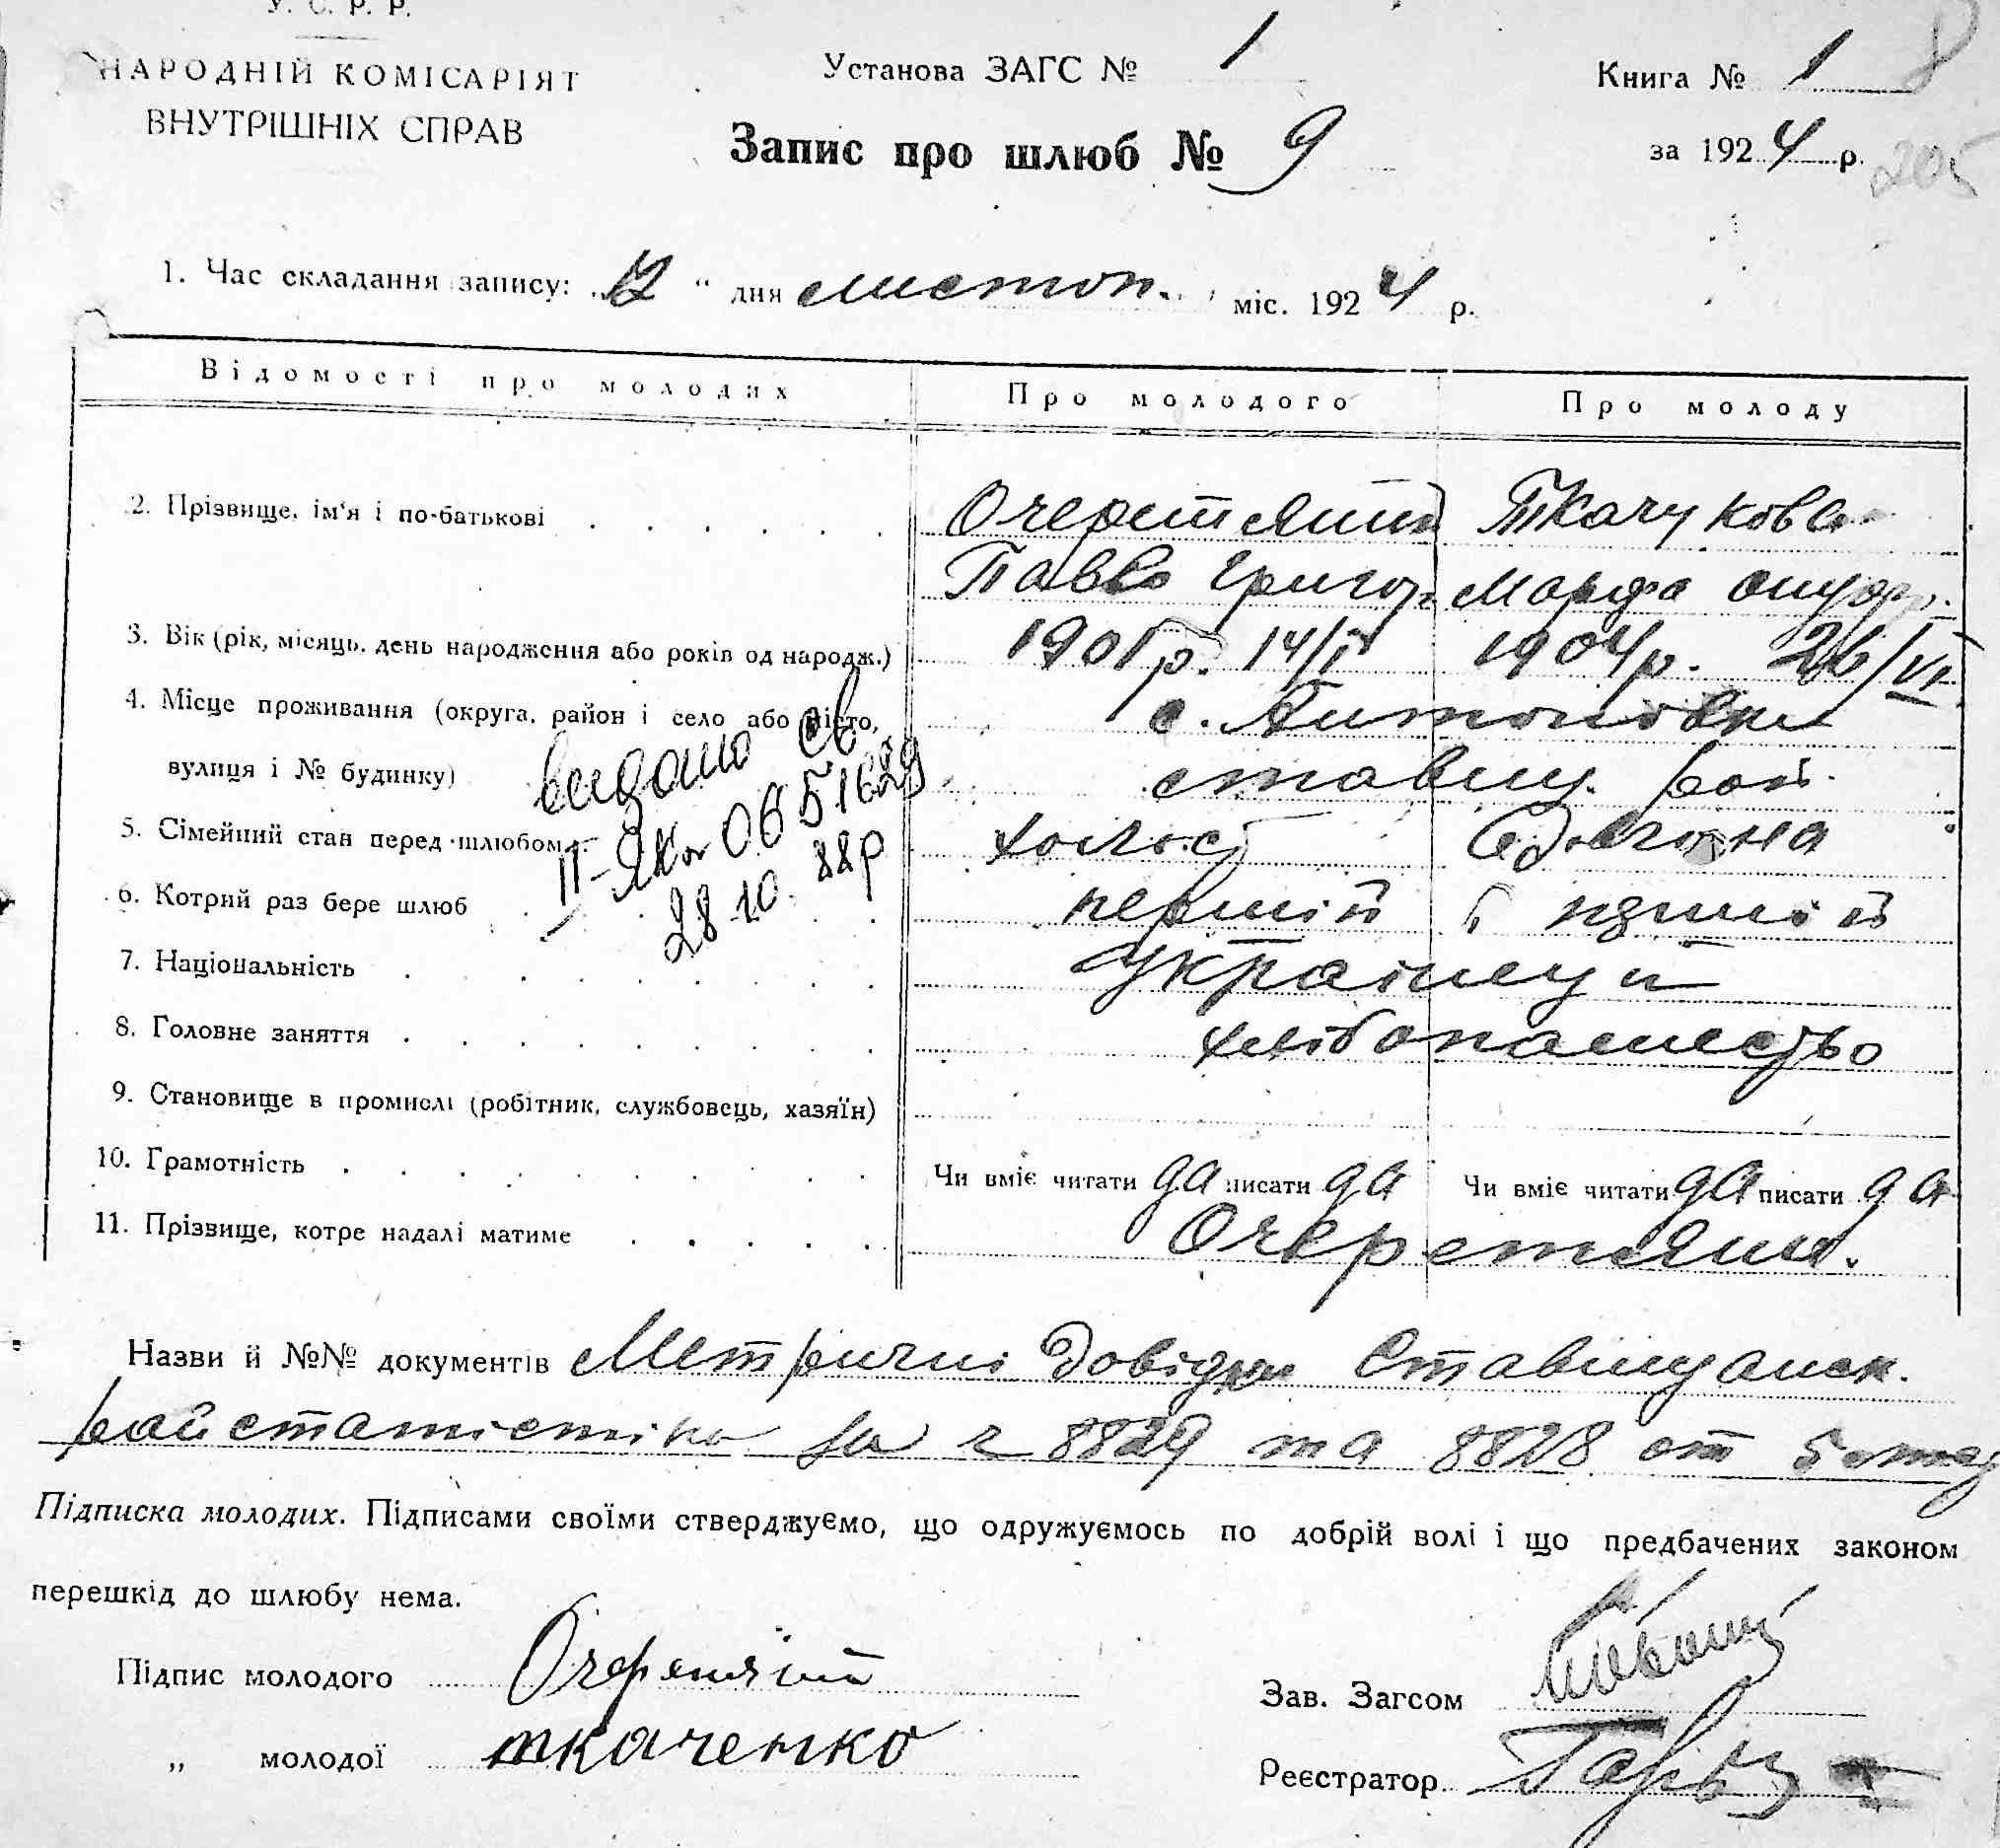 У. С. Р. Р.
НАРОДНІЙ КОМІСАРІЯТ
ВНУТРІШНІХ СПРАВ
Установа ЗАГС № 1
Книга № 1
Запис про шлюб № 9
за 1924 р.
205
1. Час складання запису: „12“ дня листоп. міс. 1924 р.
Відомості про молодих Про молодого Про молоду
2. Прізвище, ім'я і по-батькові Очеретяний Ткачукова
Павло Григор. Марфа
3. Вік (рік, місяць, день народження або років од народж.) 1901 р. 14/I 1904 р. 26/VI
4. Місце проживання (округа, район і село або місто, с. Антоновка
вулиця і № будинку) ставищ. рай.
видано св
II-ЯК № 0651629
28-10. 88р
5. Сімейний стан перед шлюбом холост
6. Котрий раз бере шлюб первий
7. Національність Українці
8. Головне заняття хлібопашество
9. Становище в промислі (робітник, службовець, хазяїн)
10. Грамотність Чи вміє читати да писати да Чи вміє читати да писати да
11. Прізвище, котре надалі матиме Очеретяни.
Назви й №№ документів Метричні довідки Ставищанск.
райстатістіка за ч 8829 та 8828 от 5
Підписка молодих. Підписами своїми стверджуємо, що одружуємось по добрій волі і що предбачених законом
перешкід до шлюбу нема.
Підпис молодого Очеретяний
„ молодої ткаченко
Зав. Загсом
Реєстратор